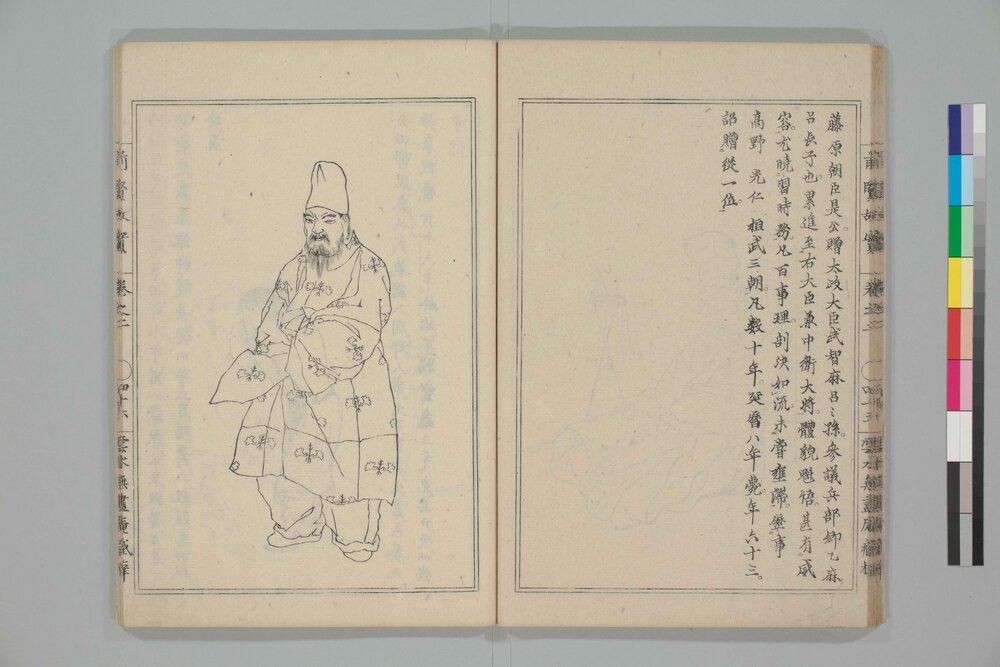 藤原朝臣是公。贈太政大臣武智麻呂之孫。參議兵部卿乙麻
呂長子也。累進至右大臣兼中衛大將。體貌魁梧。甚有威
容。尤曉習時務。凡百事理剖決如流。未嘗壅滯。歷事
高野 光仁 桓武三朝。凡數十年。延曆八年薨。年六十三。
詔贈從一位。
前賢故實
卷之二
四十六